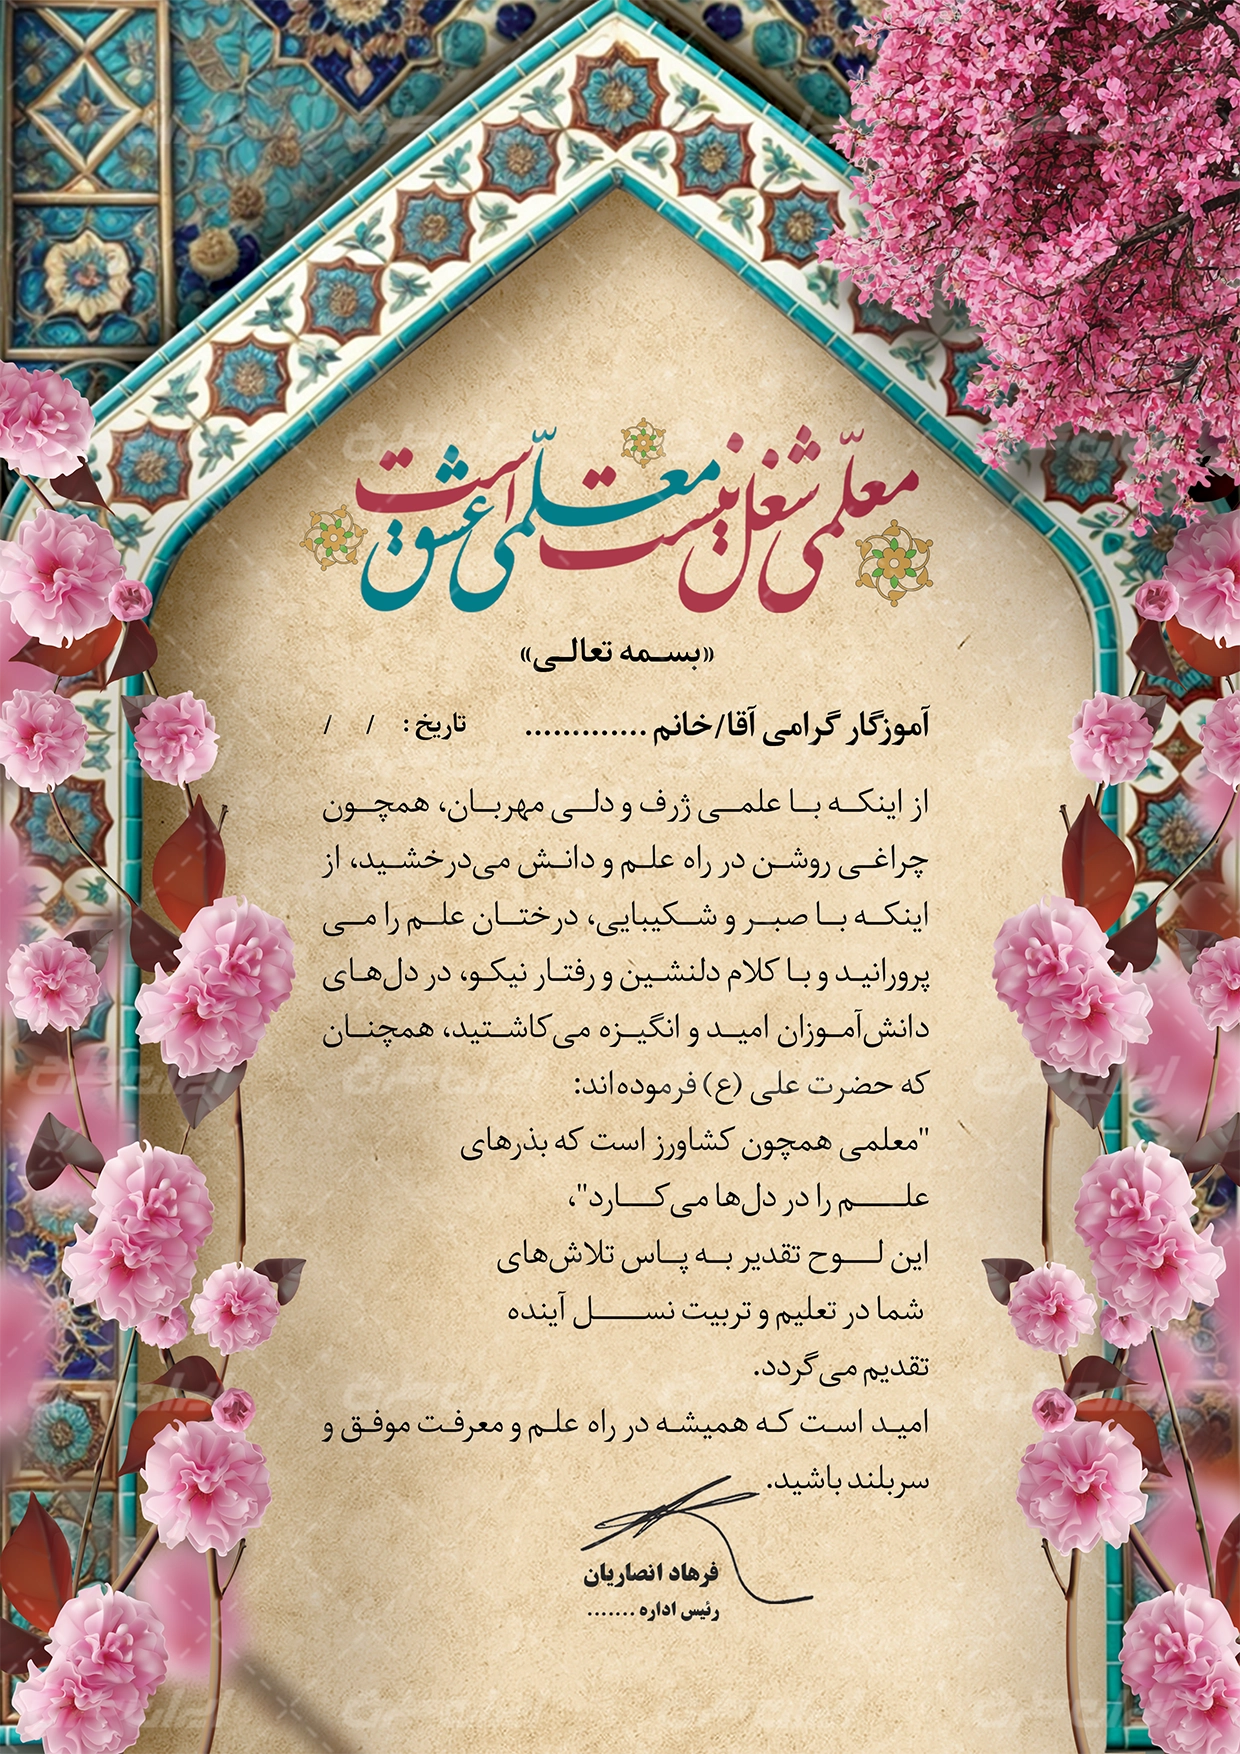 معلّمی شغل نیست معلّمی عشق است
«بسمه تعالی»
آموزگار گرامی آقا/خانم ............. تاریخ : / /
از اینکه با علمی ژرف و دلی مهربان، همچون
چراغی روشن در راه علم و دانش می‌درخشید، از
اینکه با صبر و شکیبایی، درختان علم را می
پرورانید و با کلام دلنشین و رفتار نیکو، در دل‌های
دانش‌آموزان امید و انگیزه می‌کاشتید، همچنان
که حضرت علی (ع) فرموده‌اند:
"معلمی همچون کشاورز است که بذرهای
علم را در دل‌ها می‌کارد"،
این لوح تقدیر به پاس تلاش‌های
شما در تعلیم و تربیت نسل آینده
تقدیم می‌گردد.
امید است که همیشه در راه علم و معرفت موفق و
سربلند باشید.
فرهاد انصاریان
رئیس اداره .......